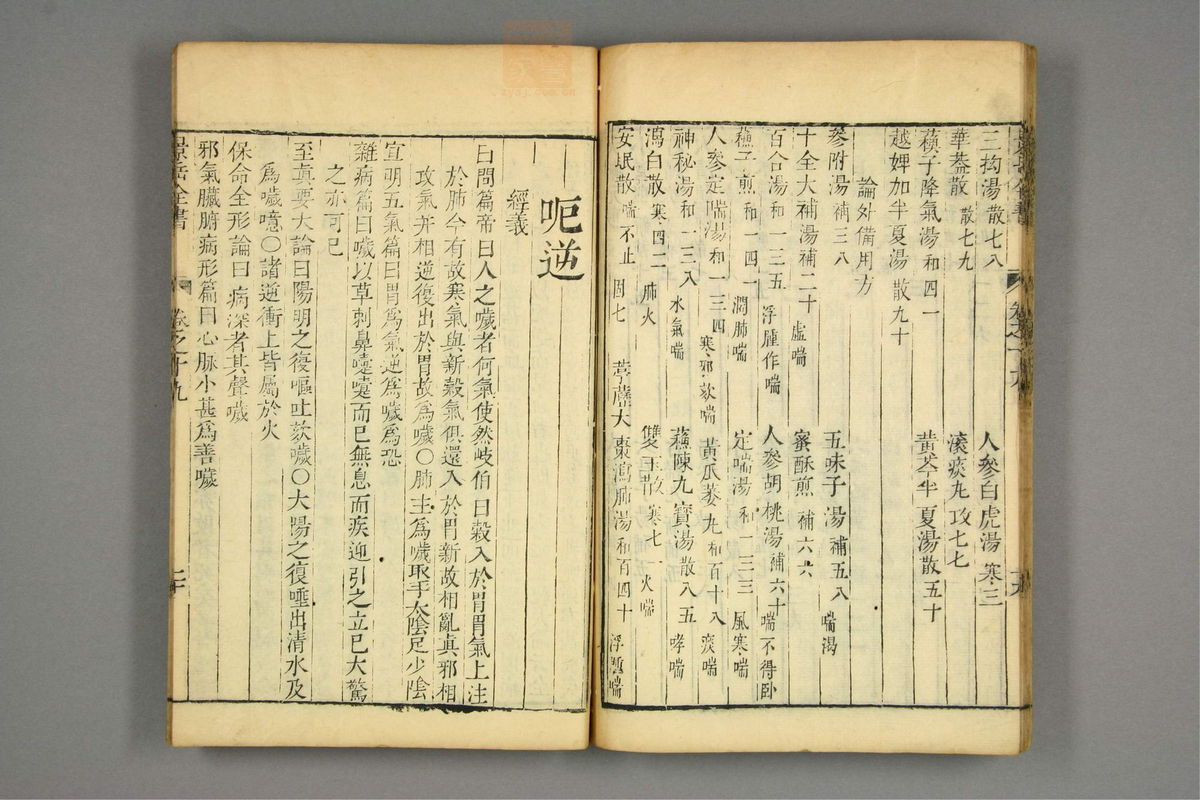 三拗湯 散七八 人參白虎湯 寒三
華葢散 散七九 滾痰丸 攻七七
蘇子降氣湯 和四一 黃芩半夏湯 散五十
越婢加半夏湯 散九十
論外備用方
參附湯 補三八 五味子湯 補五八 喘渴
十全大補湯 補二十 虛喘 蜜酥煎 補六六
百合湯 和一三五 浮腫作喘 人參胡桃湯 補六十 喘不得卧
蘇子煎 和一四一 潤肺喘 定喘湯 和一三三 風寒喘
人參定喘湯 和一三四 寒邪欬喘 黃瓜蔞丸 和百十八 痰喘
神秘湯 和一三八 水氣喘 蘇陳九寶湯 散八五 哮喘
瀉白散 寒四二 肺火 雙玉散 寒七一 火喘
安㞶散 喘不止 固七 葶藶大棗瀉肺湯 和百四十 浮腫喘
景岳全書 卷之十九
呃逆
經義
口問篇帝曰人之噦者何氣使然岐伯曰穀入於胃胃氣上注
於肺今有故寒氣與新穀氣俱還入於胃新故相亂眞邪相
攻氣并相逆復出於胃故爲噦〇肺主爲噦取手太陰足少陰
宣明五氣篇曰胃爲氣逆爲噦爲恐
雜病篇曰噦以草刺鼻嚏嚏而已無息而疾迎引之立已大驚
之亦可已
至眞要大論曰陽明之復嘔吐欬噦〇太陽之復唾出清水及
爲噦噫〇諸逆衝上皆屬於火
保命全形論曰病深者其聲噦
邪氣臟腑病形篇曰心脉小甚爲善噦
景岳全書 卷之十九 二十